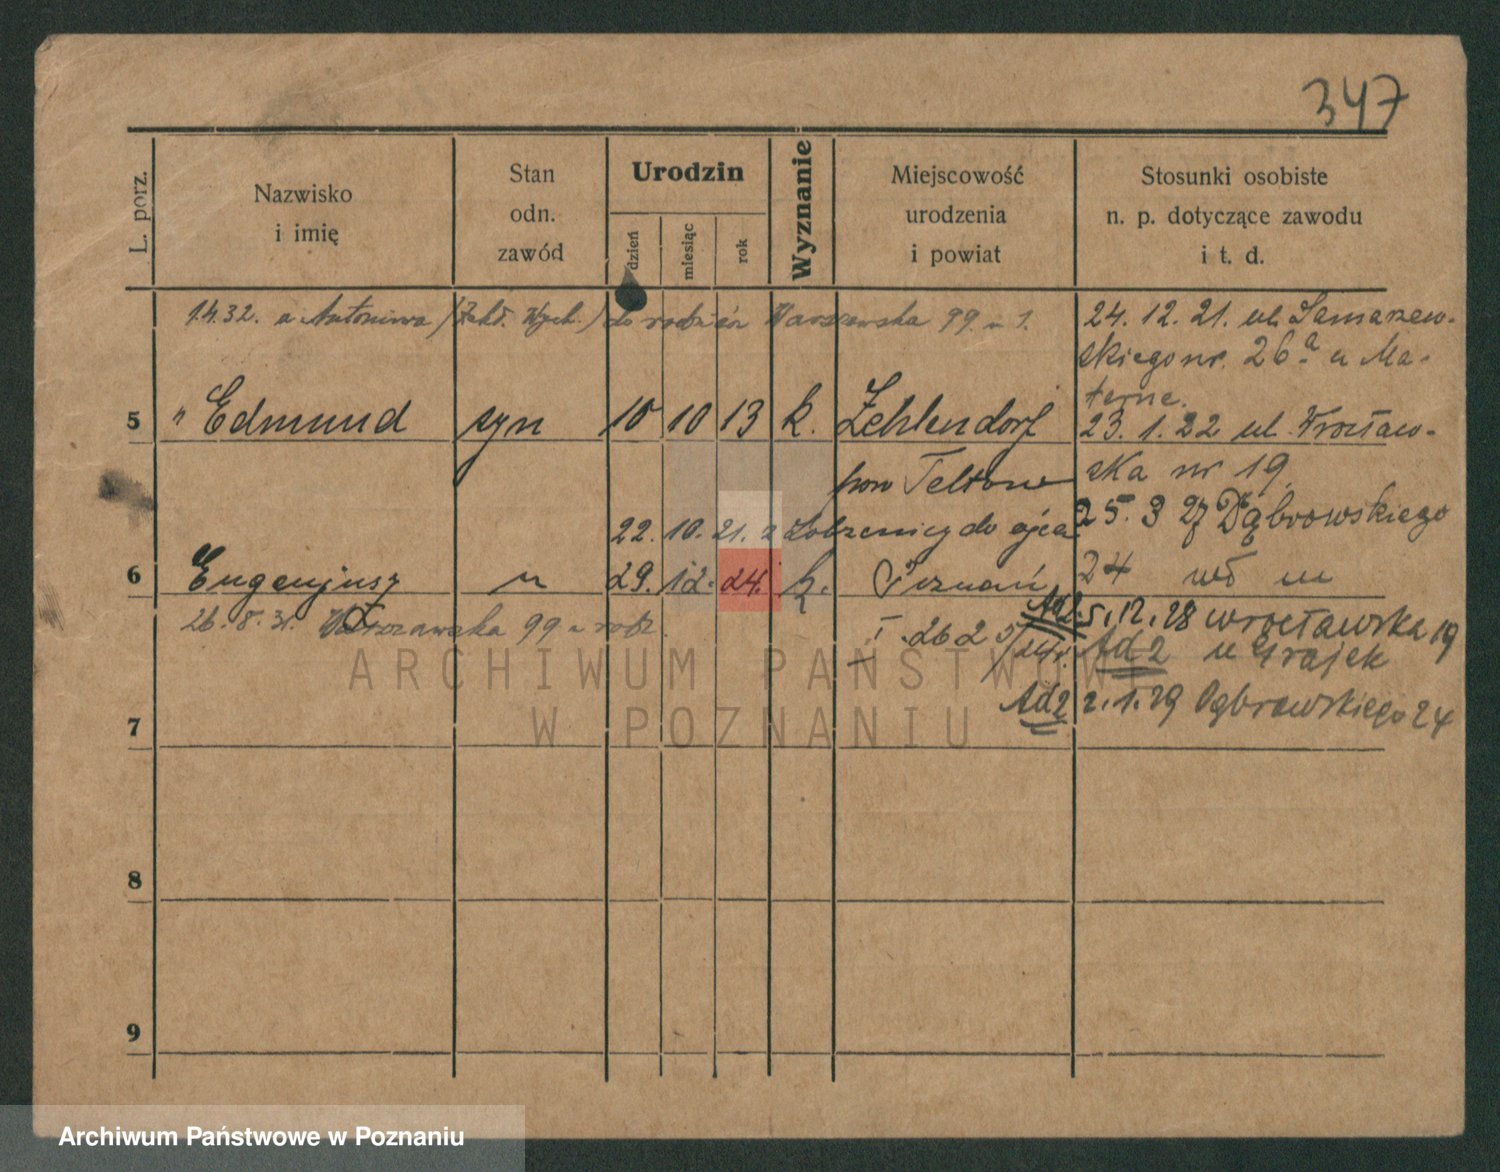 347
L. porz.
Nazwisko
i imię
Stan
odn.
zawód
Urodzin
dzień
miesiąc
rok
Wyznanie
Miejscowość
urodzenia
i powiat
Stosunki osobiste
n. p. dotyczące zawodu
i t. d.
1.4.32. u Antoniewa (Zakł. Wych.) do rodziców Warszawska 99 u 1.
24. 12. 21. ul. Samarzew-
skiego nr. 26a u Ma-
terne.
5 " Edmund syn 10 10 13 k. Zehlendorf
23. 1. 22 ul. Wrocław-
pow Teltow
ska nr 19
22. 10. 21. z Łobżenicy do ojca
25. 3 27 Dąbrowskiego
6 Eugenjusz " 29. 12. 24. k. Poznań
24 wł m
26. 8. 31. Warszawska 99 u rodz.
Ad 2 5. 12. 28 wrocławska 19
Ad 2 u Grajek
Ad 2 2. 1. 29 Dąbrowskiego 24
7
8
9
ARCHIWUM PAŃSTWOWE
W POZNANIU
Archiwum Państwowe w Poznaniu